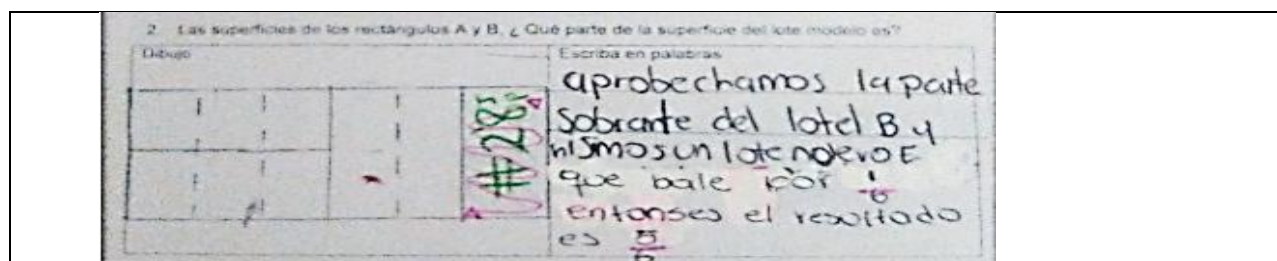 2. Las superficies de los rectángulos A y B, ¿ Qué parte de la superficie del lote modelo es?
Dibujo
Escriba en palabras
#28
aprobechamos la parte
Sobrante del lotel B y
hismos un lote nuevo E
que bale por 1/6
entonses el resultado
es 5/6